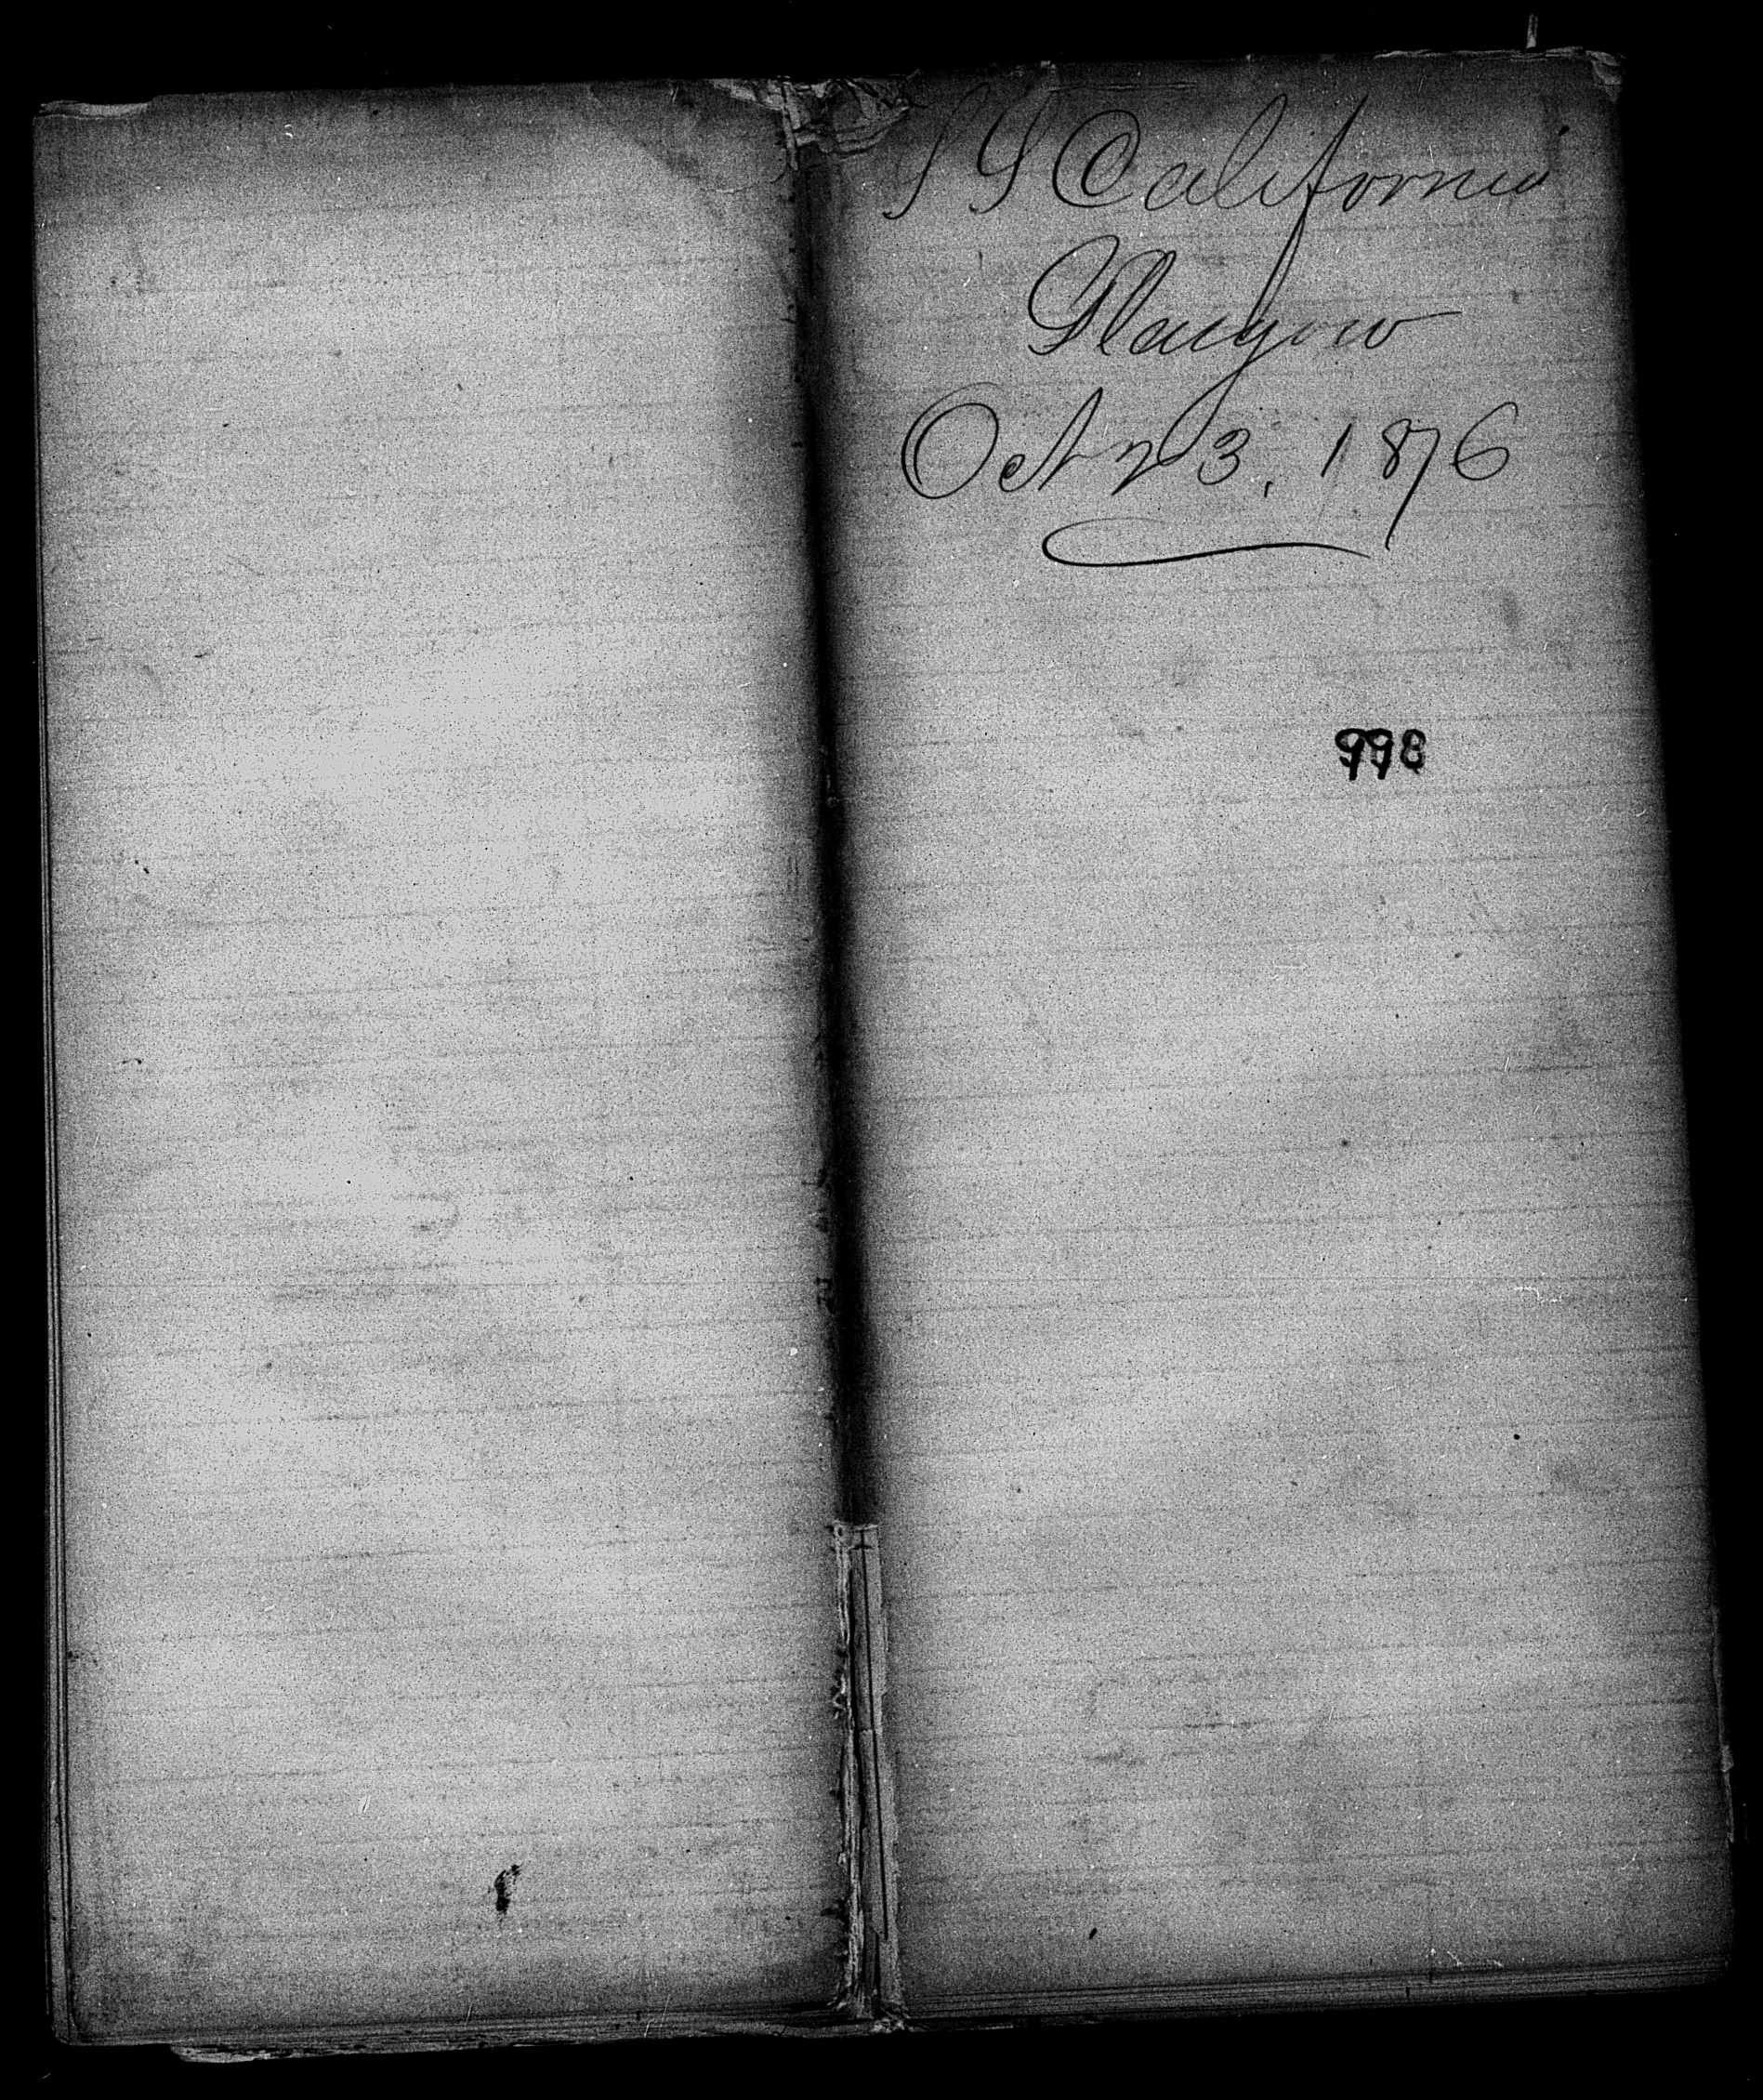 SS California
Glasgow
Oct 23, 1876
998